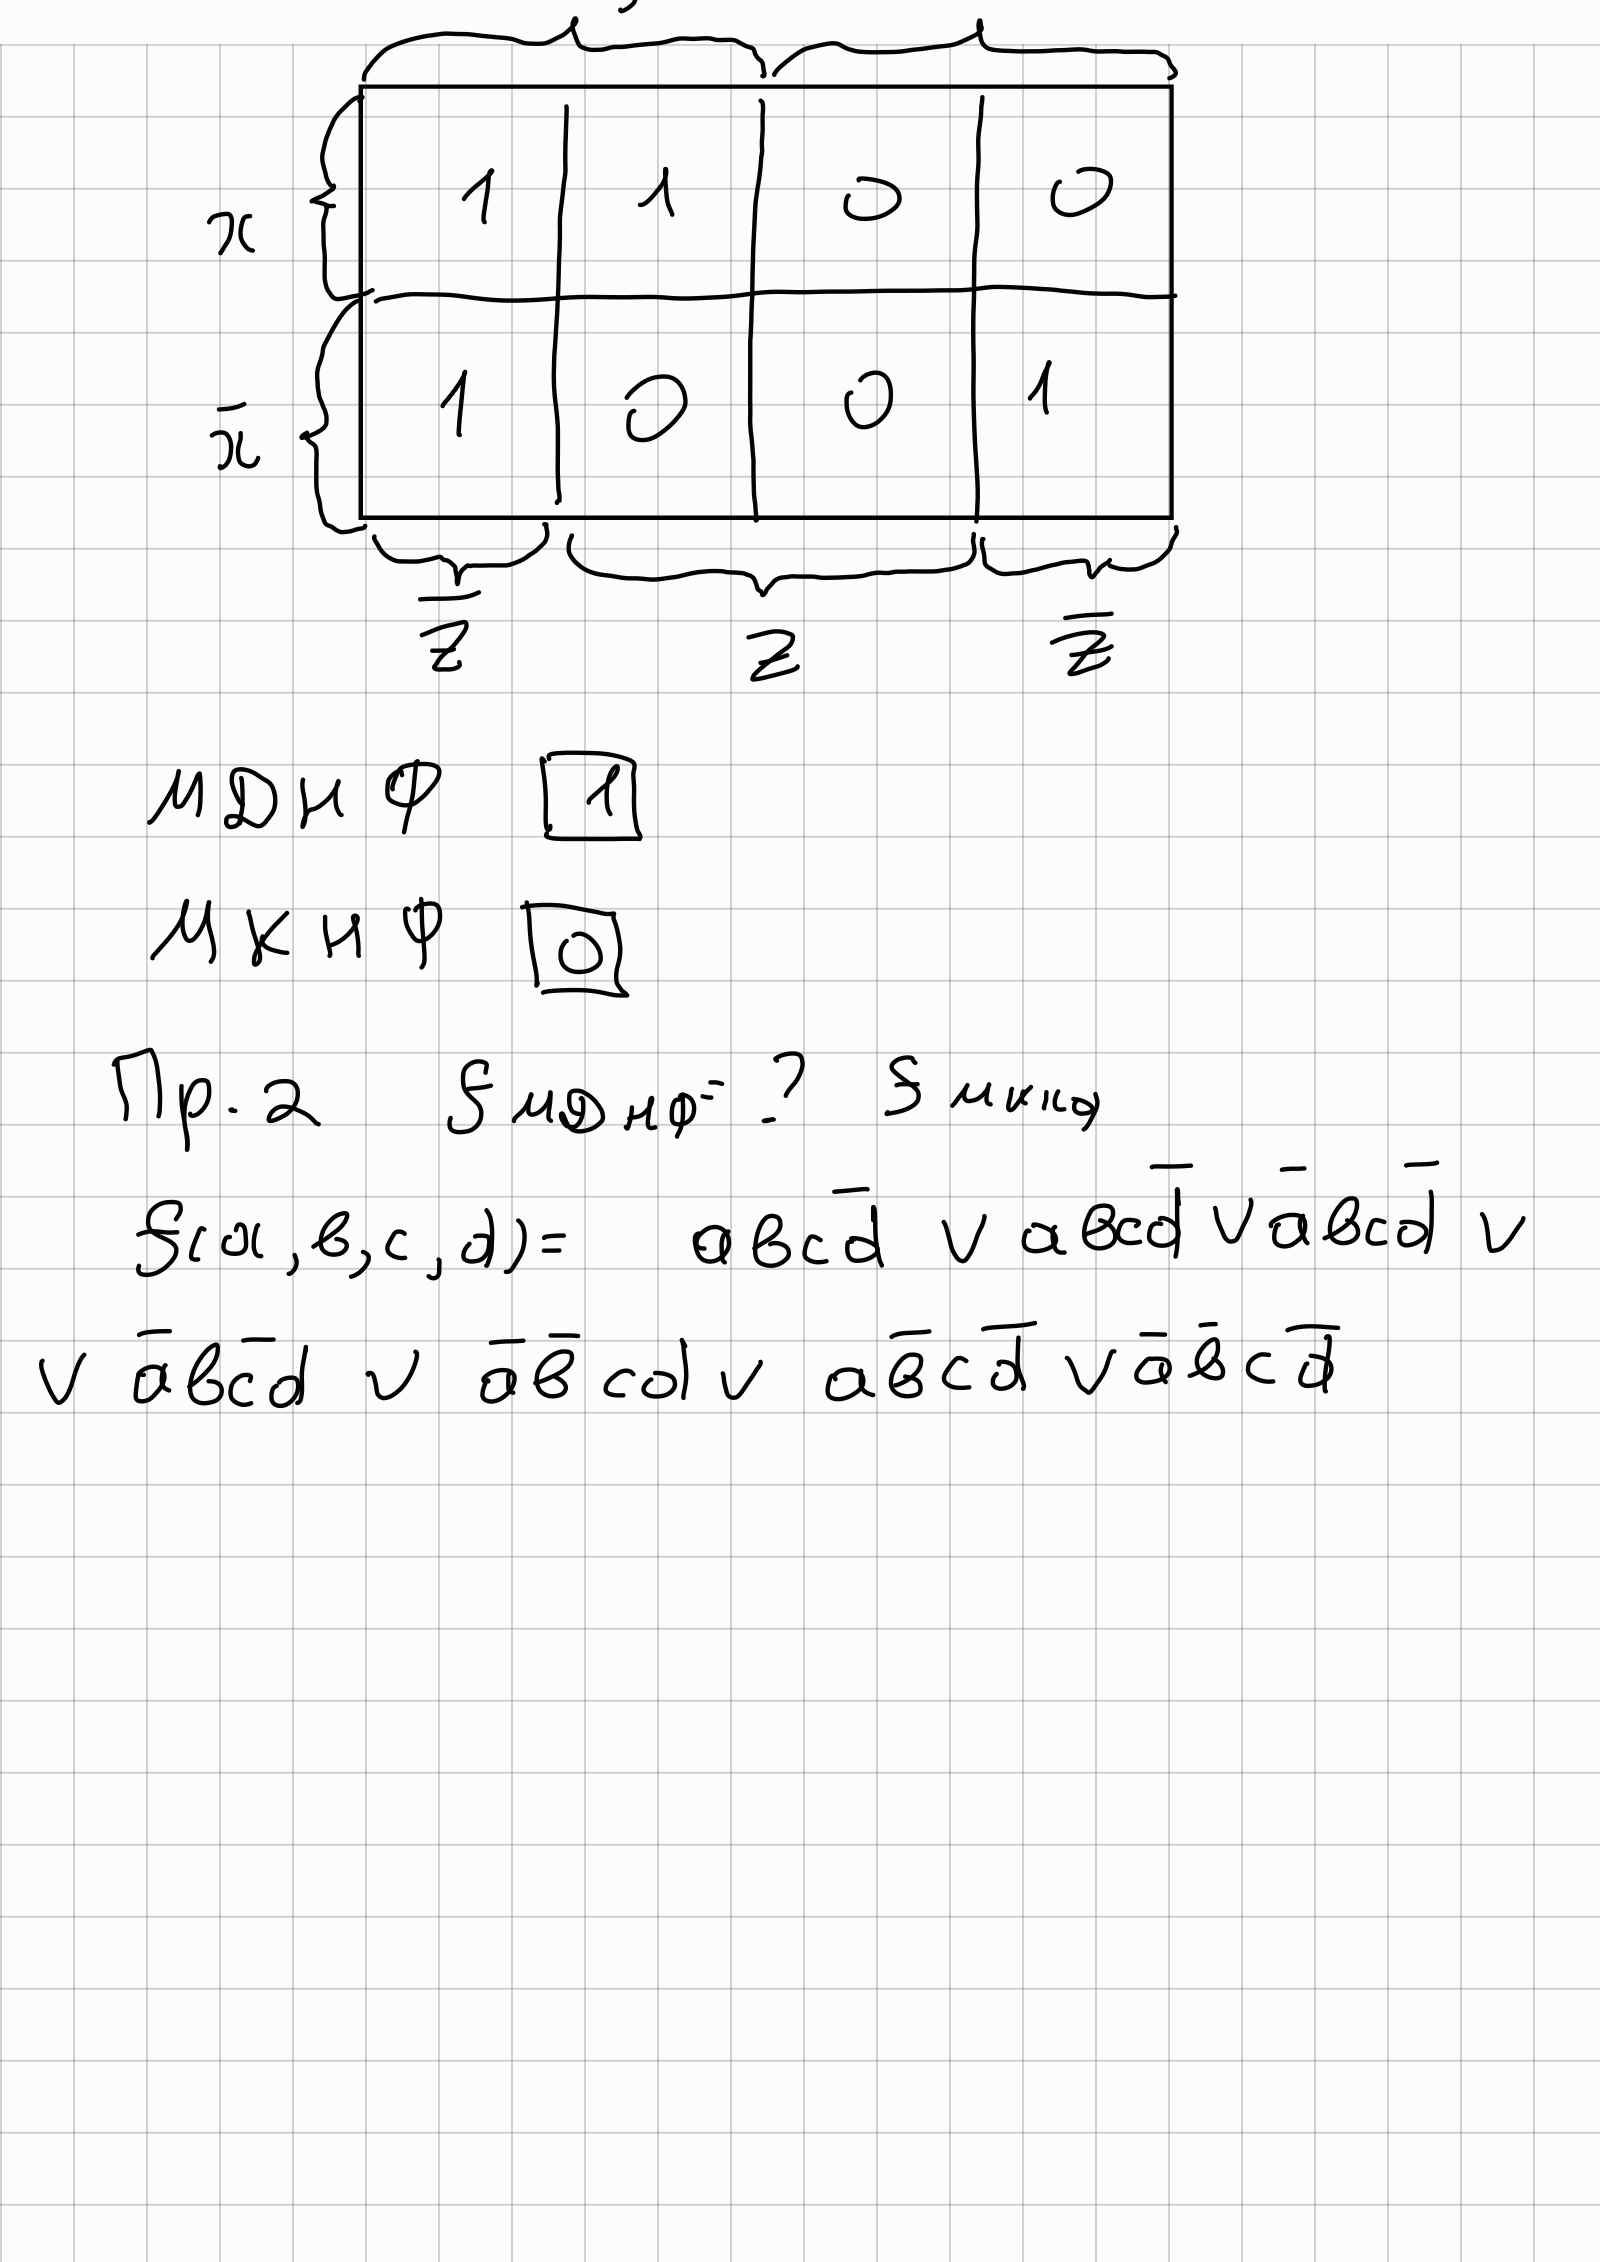 1 1 0 0
x
1 0 0 1
x̄
z̄ z z̄
МДНФ 1
МКНФ 0
Пр. 2 f МДНФ = ? f МКНФ
f(a,b,c,d)= abcd̄ ∨ abcd̄ ∨ ābcd̄ ∨
∨ ābc̄d ∨ āb̄cd ∨ ab̄cd̄ ∨ āb̄cd̄